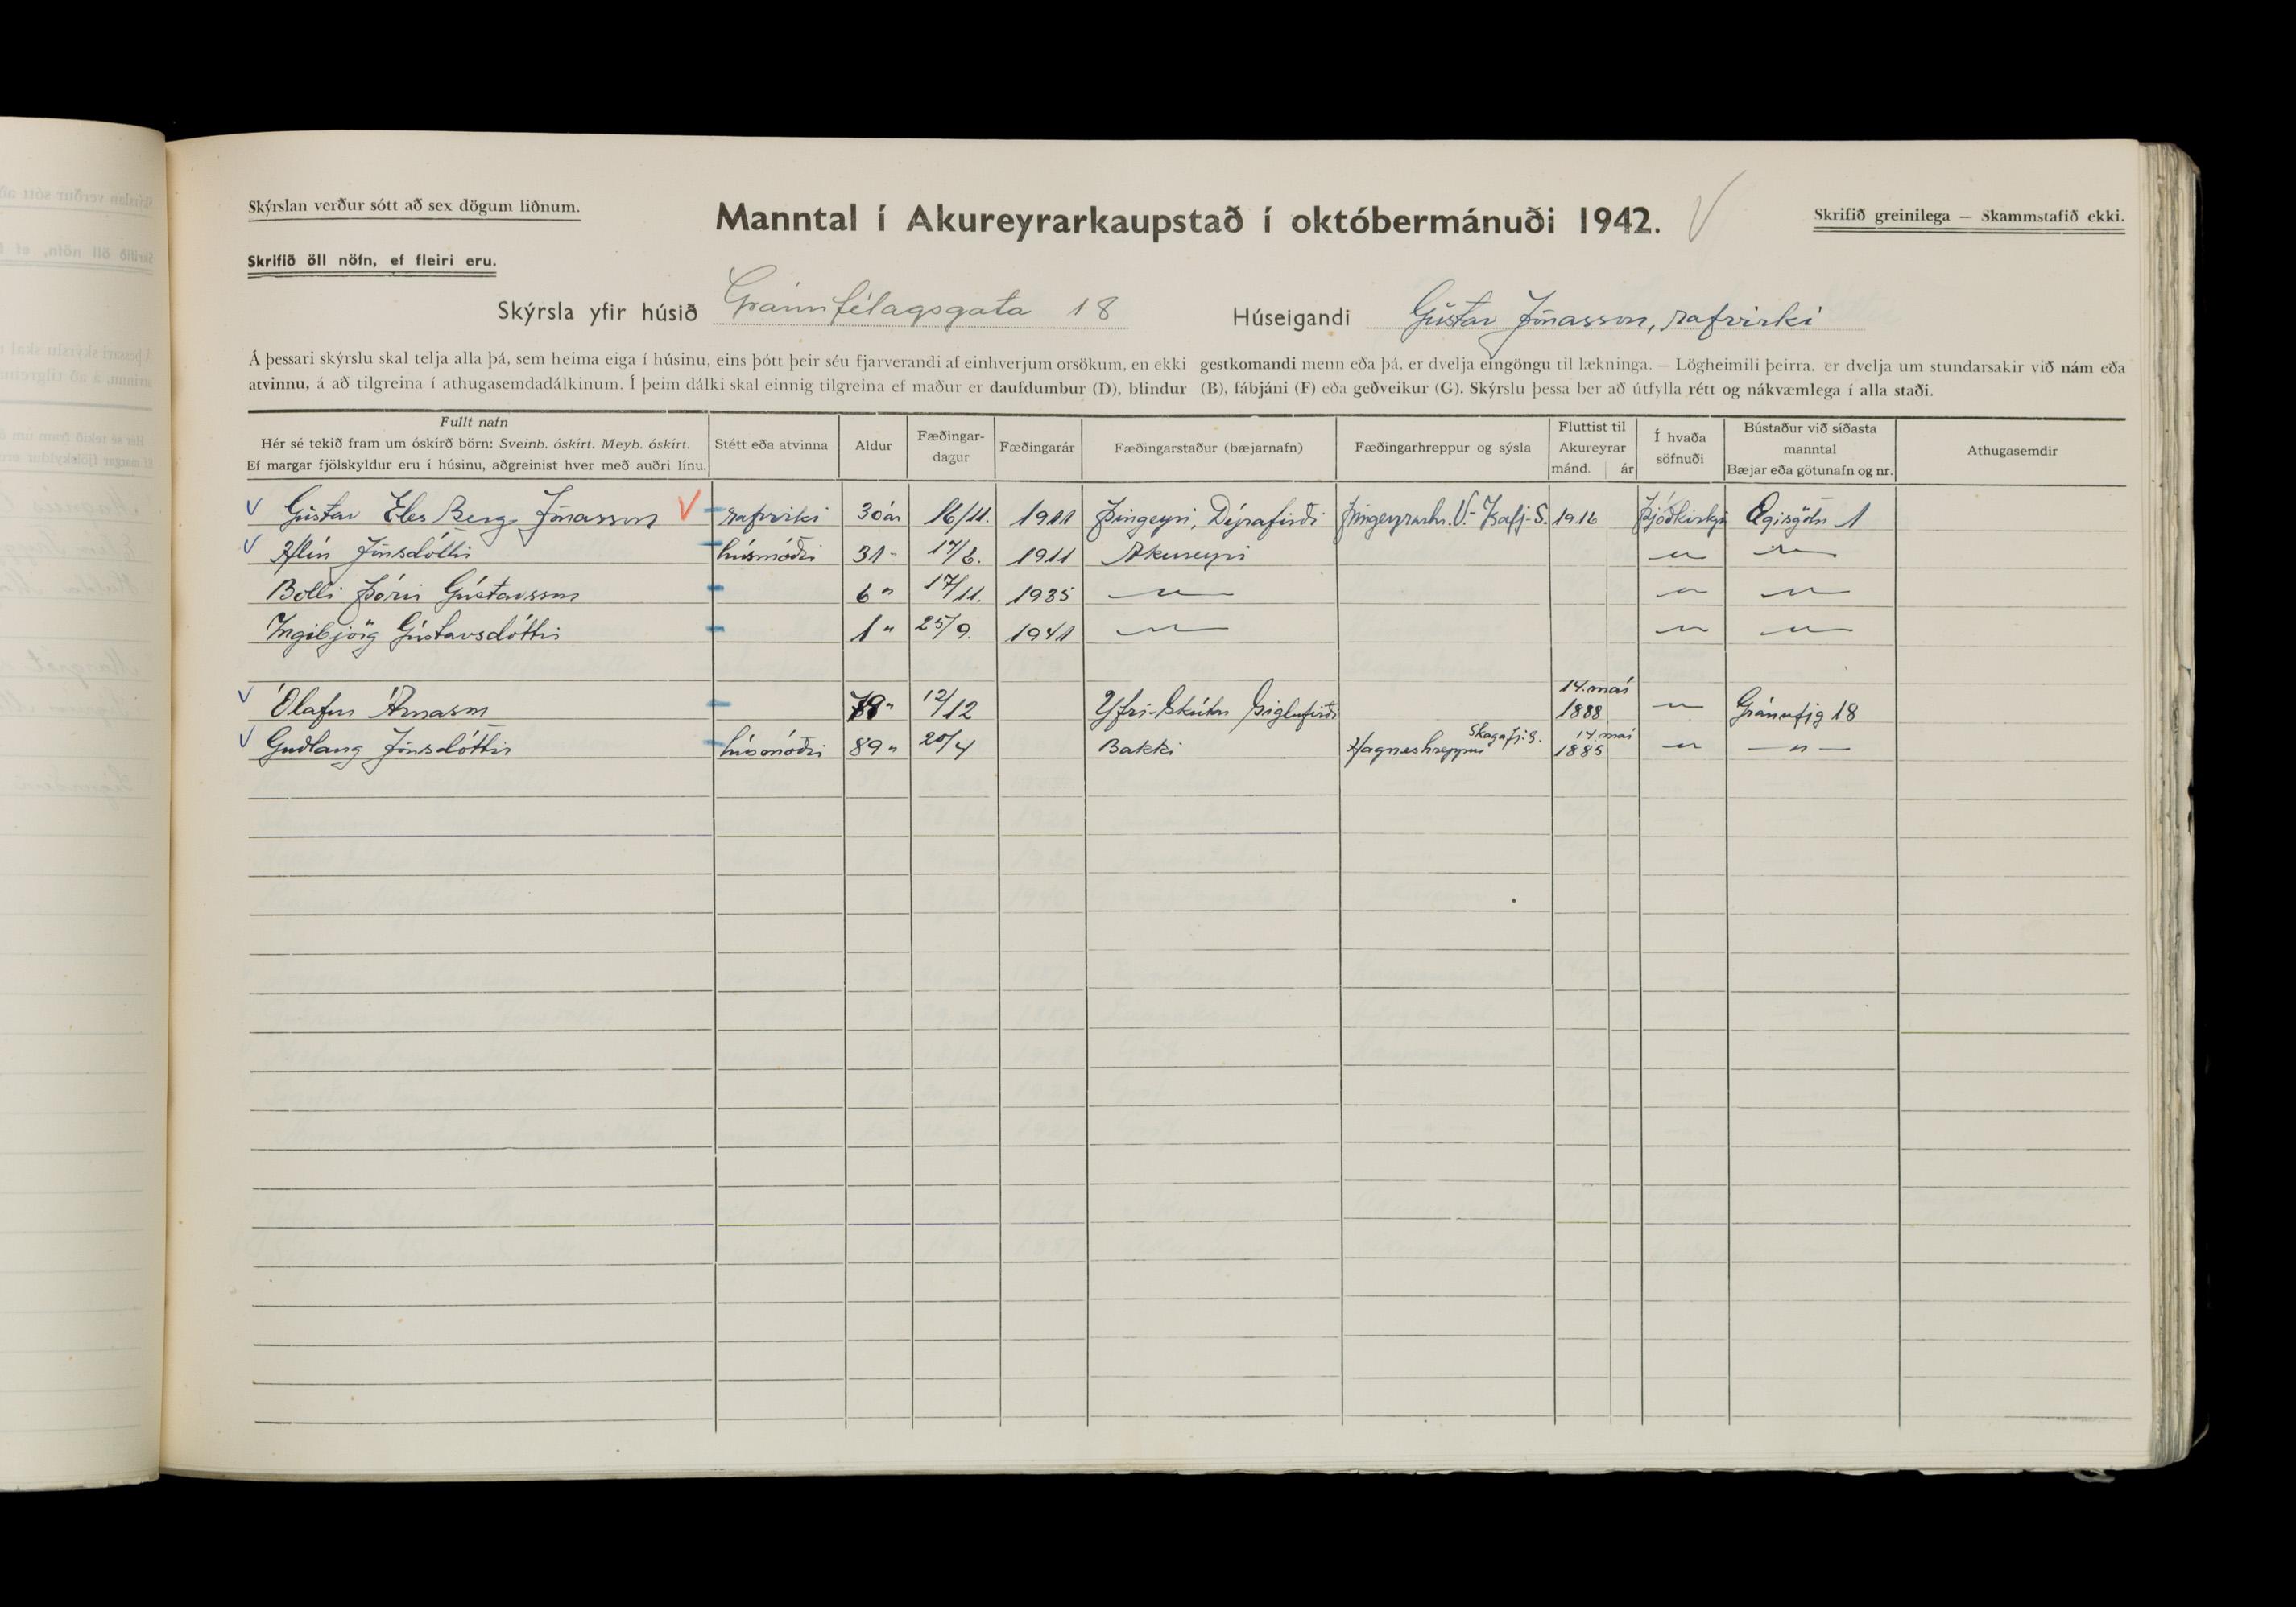 Skýrslan verður sótt að sex dögum liðnum.
Manntal í Akureyrarkaupstað í októbermánuði 1942. V
Skrifið greinilega — Skammstafið ekki.
Skrifið öll nöfn, ef fleiri eru.
Skýrsla yfir húsið Gránufélagsgata 18 Húseigandi Gústav Jónasson, rafvirki
Á þessari skýrslu skal telja alla þá, sem heima eiga í húsinu, eins þótt þeir séu fjarverandi af einhverjum orsökum, en ekki gestkomandi menn eða þá, er dvelja eingöngu til lækninga. — Lögheimili þeirra, er dvelja um stundarsakir við nám eða
atvinnu, á að tilgreina í athugasemdadálkinum. Í þeim dálki skal einnig tilgreina ef maður er daufdumbur (D), blindur (B), fábjáni (F) eða geðveikur (G). Skýrslu þessa ber að útfylla rétt og nákvæmlega í alla staði.
Fullt nafn
Hér sé tekið fram um óskírð börn: Sveinb. óskírt. Meyb. óskírt.
Ef margar fjölskyldur eru í húsinu, aðgreinist hver með auðri línu.
Stétt eða atvinna
Aldur
Fæðingar-
dagur
Fæðingarár
Fæðingarstaður (bæjarnafn)
Fæðingarhreppur og sýsla
Fluttist til
Akureyrar
mánd. ár
Í hvaða
söfnuði
Bústaður við síðasta
manntal
Bæjar eða götunafn og nr.
Athugasemdir
V Gústav Berg Jónasson V rafvirki 30 ár 16/11. 1911 Þingeyri, Dýrafirði Þingeyrarhr. V.-Ísafj.-S. 1916 Þjóðkirkju Ægisgötu 1
V Hlín Jónsdóttir húsmóðir 31 " 1911 Akureyri — " — — " —
Bolli Þórir Gústavsson 6 " 17/11. 1935 — " — — " — — " —
Ingibjörg Gústavsdóttir 1 " 25/9. 1941 — " — — " — — " —
V Ólafur Árnason 12/12 Siglufirði 14. maí 1888 — " — Gránufjg 18
V Guðlaug Jónsdóttir húsmóðir 89 " 20/4 Bakki Hagneshreppur Skagafj.s. 14. maí 1885 — " — — " —